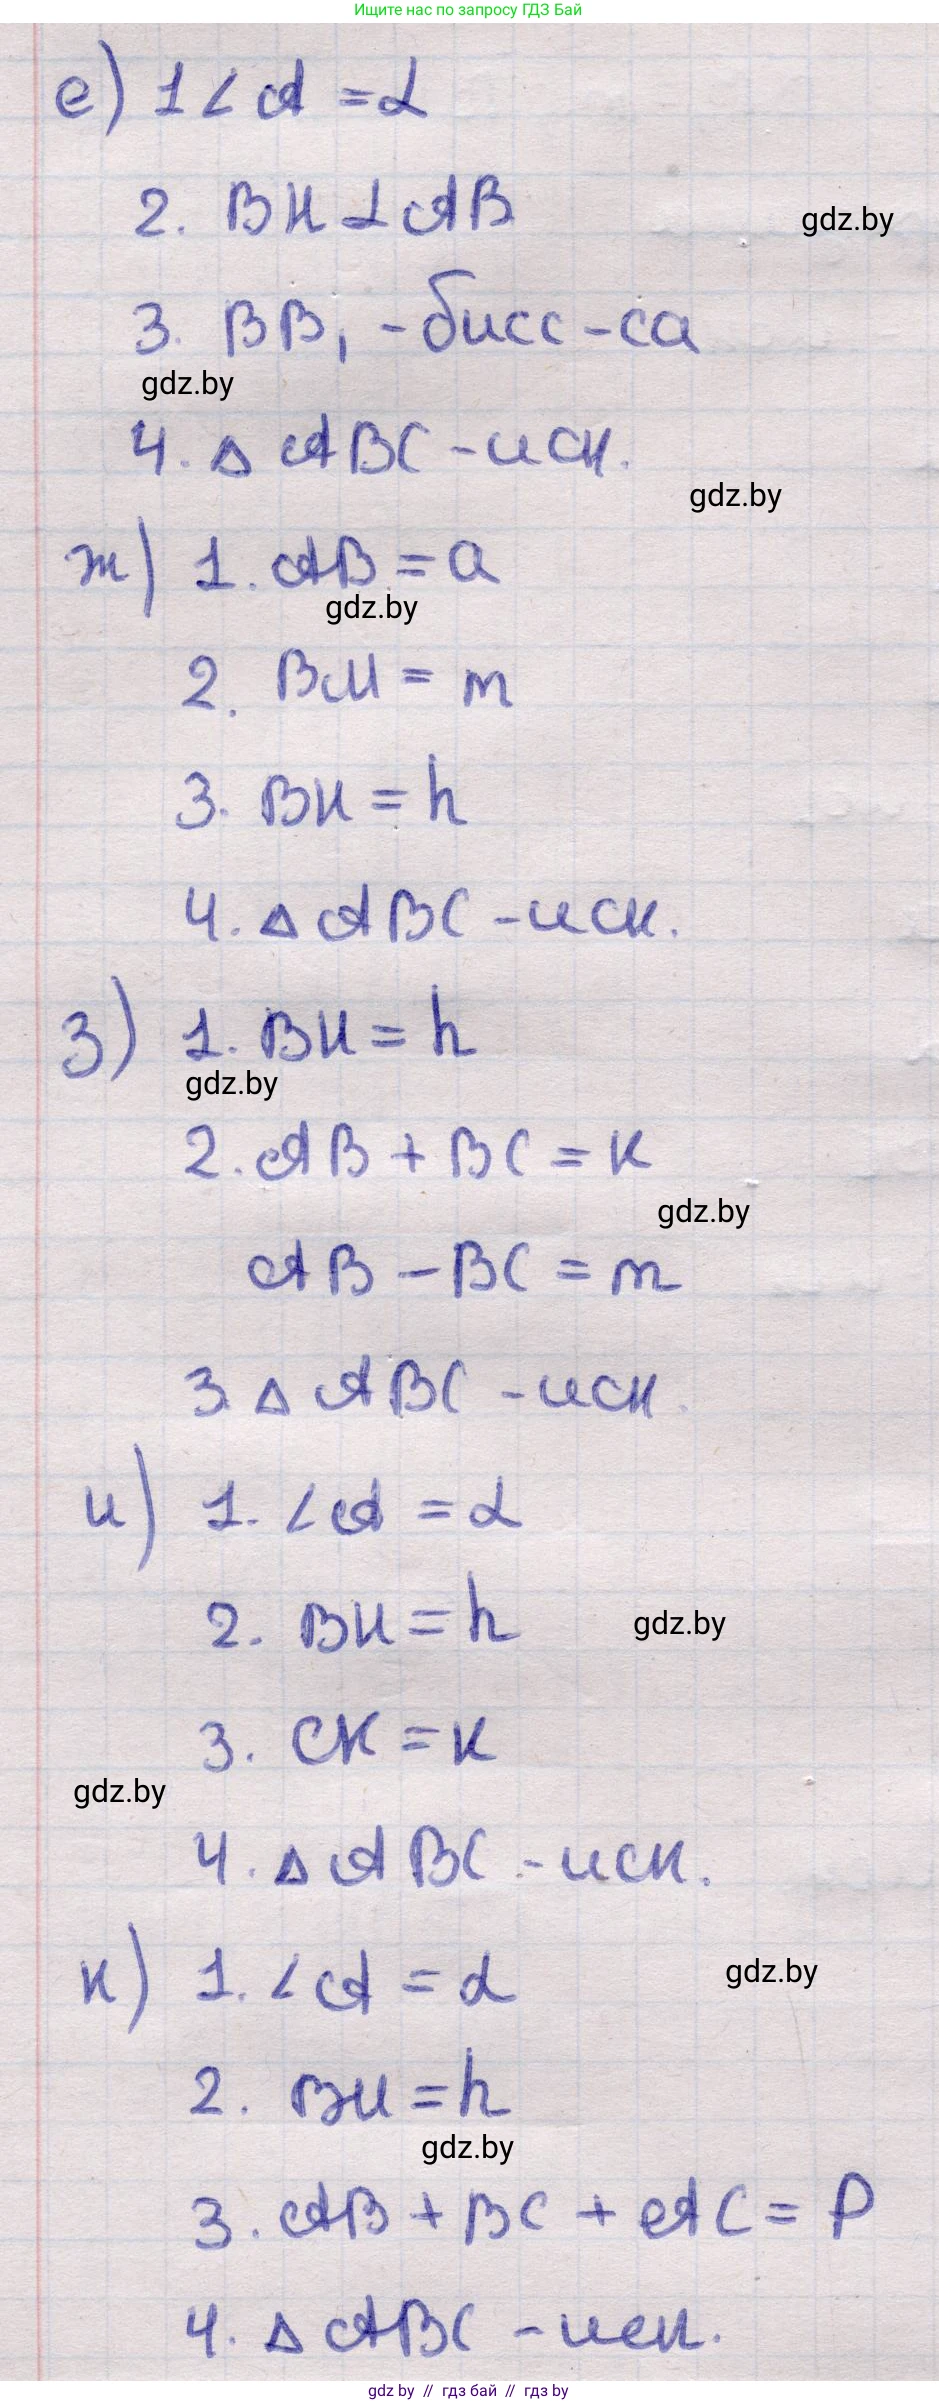 Ищите нас по запросу ГДЗ Бай
е) 1 ∠A = α
2. BH ⊥ AB
gdz.by
3. BB₁ - бисс-са
gdz.by
4. Δ ABC - иск.
gdz.by
ж) 1. AB = a
gdz.by
2. BM = m
3. BH = h
4. Δ ABC - иск.
з) 1. BH = h
gdz.by
2. AB + BC = к
gdz.by
AB - BC = m
3. Δ ABC - иск.
и) 1. ∠A = α
2. BH = h
gdz.by
3. CK = к
gdz.by
4. Δ ABC - иск.
к) 1. ∠A = α
gdz.by
2. BH = h
gdz.by
3. AB + BC + AC = P
4. Δ ABC - иск.
gdz by // гдз бай // гдз by